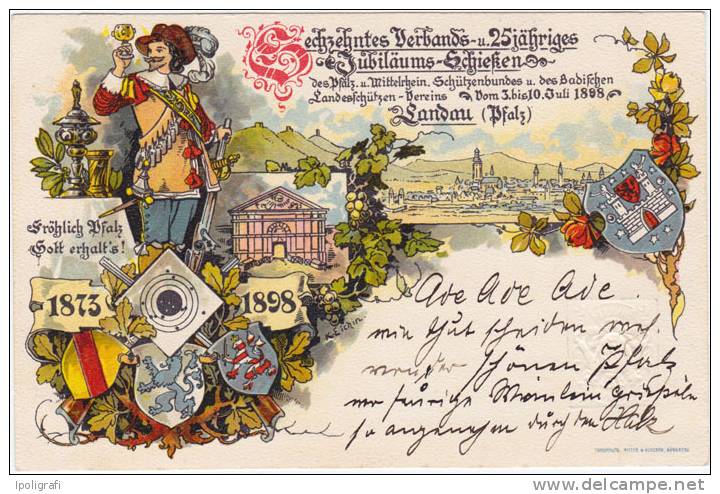 Sechzehntes Verbands- u. 25jähriges
Jubiläums-Schießen
des Pfälz. u. Mittelrhein. Schützenbundes u. des Badischen
Landesschützen-Vereins Vom 3. bis 10. Juli 1898,
Landau (Pfalz)
Fröhlich Pfalz
Gott erhalt's!
1873
1898
K. Eichin
Ade Ade Ade.
wie thut scheiden weh.
von der schönen Pfalz
wo feurige Weinlein
so angenehm durch den Hals
Ipoligrafi
delcampe.net